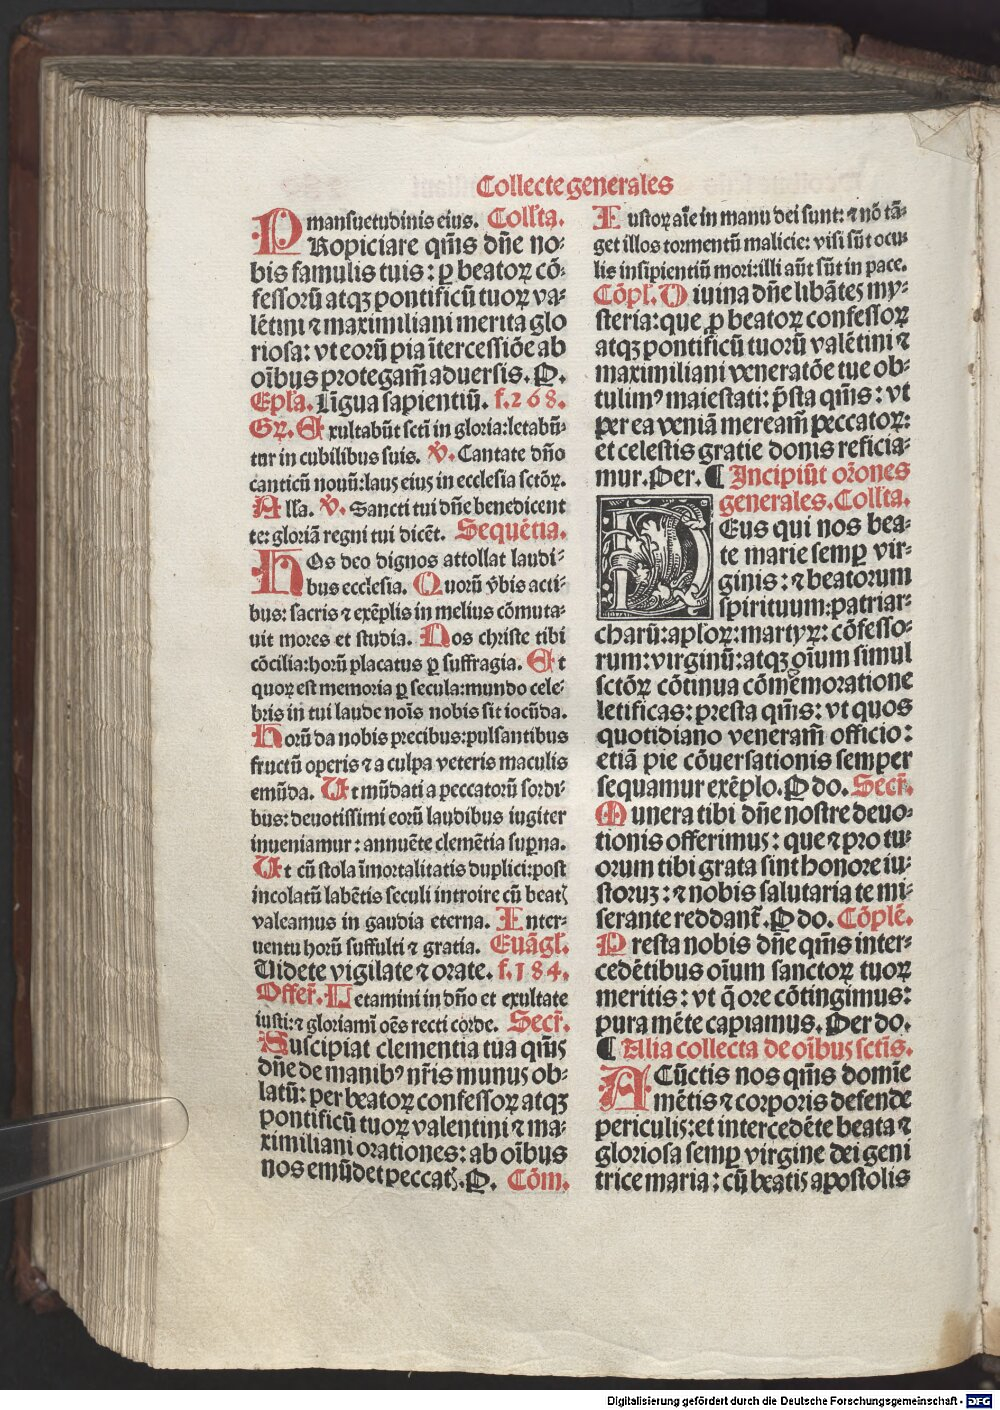 Collecte generales
mansuetudinis eius. Coll'ta.
PRopiciare qm̄s dn̄e no-
bis famulis tuis: ꝑ beatoꝝ cō-
fessorū atqꝫ pontificū tuoꝝ va-
lētini ⁊ maximiliani merita glo
riosa: vt eorū pia ītercessiōe ab
oībus protegam̄ aduersis. P.
Epl'a. Līgua sapientiū. f.268.
Gꝛ. Exultabūt sctī in gloria: letabū-
tur in cubilibus suis. v̇. Cantate dn̄o
canticū nouū: laus eius in ecclesia sctōꝝ.
Alla. v̇. Sancti tui dn̄e benedicent
te: gloriā regni tui dicēt. Sequētia.
HOs deo dignos attollat laudi-
bus ecclesia. Quorū v̇bis acti-
bus: sacris ⁊ exēplis in melius cōmuta-
uit mores et studia. Nos christe tibi
cōcilia: horū placatus ꝑ suffragia. Et
quoꝝ est memoria ꝑ secula: mundo cele-
bris in tui laude noīs nobis sit iocūda.
Horū da nobis precibus: pulsantibus
fructū operis ⁊ a culpa veteris maculis
emūda. Ut mūdati a peccatorū sordi-
bus: deuotissimi eorū laudibus iugiter
inueniamur: annuēte clemētia suꝑna.
Ut cū stola īmortalitatis duplici: post
incolatū labētis seculi introire cū beatꝭ
valeamus in gaudia eterna. Inter-
uentu horū suffulti ⁊ gratia. Euāgl'.
Uidete vigilate ⁊ orate. f.184.
Offer̄. Letamini in dn̄o et exultate
iusti: ⁊ gloriamī oēs recti corde. Secr̄.
Suscipiat clementia tua qm̄s
dn̄e de manibꝰ nr̄is munus ob-
latū: per beatoꝝ confessoꝝ atqꝫ
pontificū tuoꝝ valentini ⁊ ma-
ximiliani orationes: ab oībus
nos emūdet peccatꝭ. P. Cōm.
Iustoꝝ aīe in manu dei sunt: ⁊ nō tā-
get illos tormentū malicie: visi sūt ocu-
lis insipientiū mori: illi aūt sūt in pace.
Cōpl'. Diuina dn̄e libātes my-
steria: que ꝑ beatoꝝ confessoꝝ
atqꝫ pontificū tuorū valētini ⁊
maximiliani veneratōe tue ob-
tulimꝰ maiestati: p̄sta qm̄s: vt
per ea veniā meream̄ peccatoꝝ:
et celestis gratie donis reficia-
mur. Per. ¶ Incipiūt or̄ones
generales. Coll'ta.
DEus qui nos bea-
te marie semꝑ vir-
ginis: ⁊ beatorum
spirituum: patriar-
charū: apl'oꝝ: martyꝝ: cōfesso-
rum: virginū: atqꝫ oīum simul
sctōꝝ cōtinua cōmemoratione
letificas: presta qm̄s: vt quos
quotidiano veneram̄ officio:
etiā pie cōuersationis semper
sequamur exēplo. P do. Secr̄.
Munera tibi dn̄e nostre deuo-
tionis offerimus: que ⁊ pro tu-
orum tibi grata sint honore iu-
storuꝫ: ⁊ nobis salutaria te mi-
serante reddant̄. P do. Cōplē.
Presta nobis dn̄e qm̄s inter-
cedētibus oīum sanctoꝝ tuoꝝ
meritis: vt q̄ ore cōtingimus:
pura mēte capiamus. Per do.
¶ Alia collecta de oībus sctīs.
A Cūctis nos qm̄s domīe
mētis ⁊ corporis defende
periculis: et intercedēte beata ⁊
gloriosa semꝑ virgine dei geni
trice maria: cū beatis apostolis
Digitalisierung gefördert durch die Deutsche Forschungsgemeinschaft - DFG